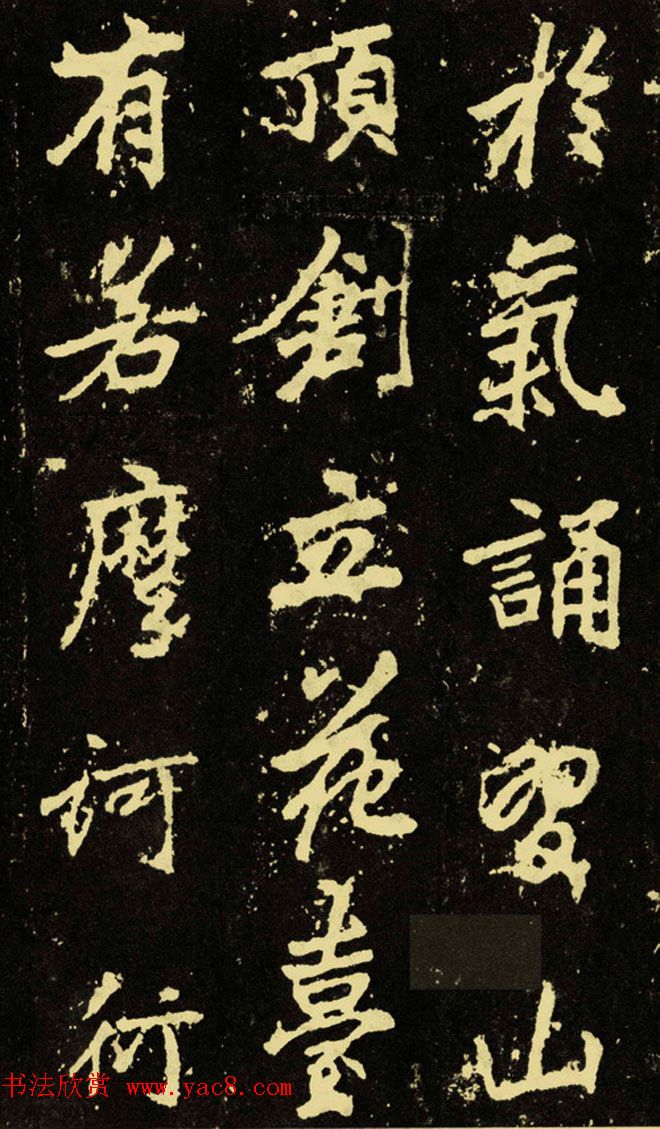 於氣誦山
頂創立花臺
有若摩訶衍
书法欣赏 www.yac8.com